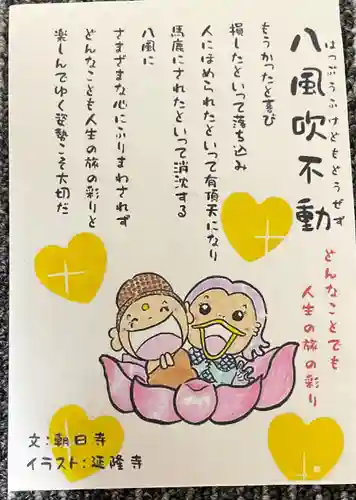 八風吹不動
はっぷうふけどもどうぜず
どんなことでも
人生の旅の彩り
もうかったと喜び
損したといって落ち込み
人にほめられたといって有頂天になり
馬鹿にされたといって消沈する
八風に
さまざまな心にふりまわされず
どんなことも人生の旅の彩りと
楽しんでゆく姿勢こそ大切だ
文:朝日寺
イラスト:延隆寺